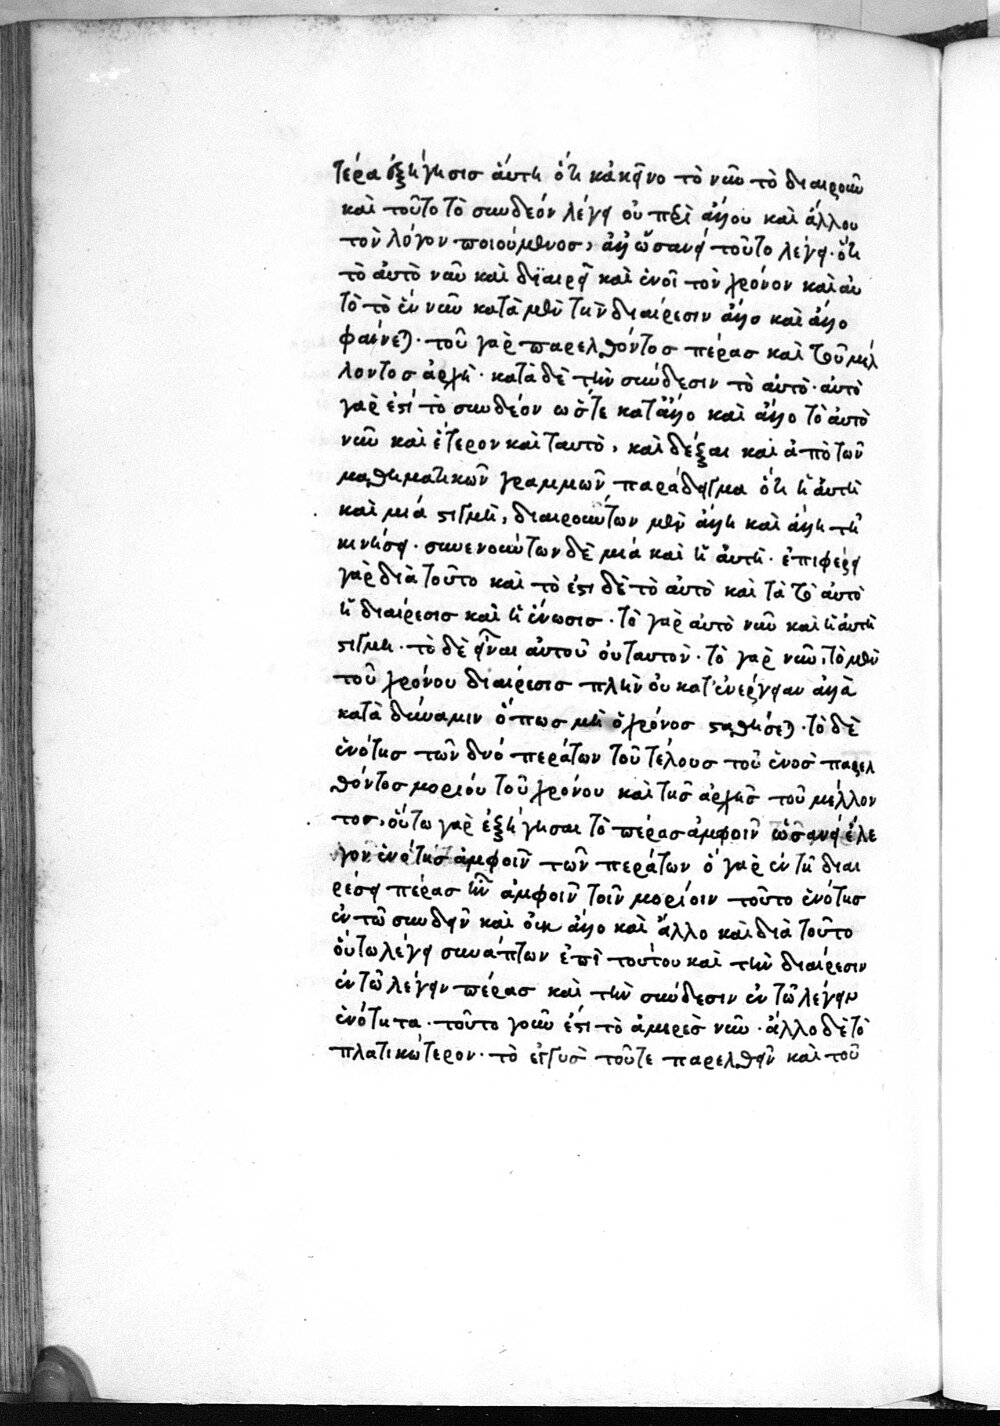 τέρα ἐξήγησις αὕτη ὅτι κἀκεῖνο τὸ νῦν τὸ διαιροῦν
καὶ τοῦτο τὸ συνδέον λέγει οὐ περὶ ἄλλου καὶ ἄλλου
τὸν λόγον ποιούμενος, ἀλλ' ὡσανεὶ τοῦτο λέγει· ὅτι
τὸ αὐτὸ νῦν καὶ διαιρεῖ καὶ ἑνοῖ τὸν χρόνον καὶ αυ
τὸ τὸ ἓν νῦν κατὰ μὲν τὴν διαίρεσιν ἄλλο καὶ ἄλλο
φαίνεται· τοῦ γὰρ παρελθόντος πέρας καὶ τοῦ μέλ
λοντος ἀρχή· κατὰ δὲ τὴν σύνδεσιν τὸ αὐτό· αὐτὸ
γάρ ἐστι τὸ συνδέον ὥστε κατ' ἄλλο καὶ ἄλλο τὸ αὐτὸ
νῦν καὶ ἕτερον καὶ ταυτὸ, καὶ δέξαι καὶ ἀπὸ τῶν
μαθηματικῶν γραμμῶν παράδειγμα ὅτι ἡ αὐτὴ
καὶ μία στιγμὴ, διαιρούντων μὲν ἄλλη καὶ ἄλλη τῇ
κινήσει· συνενούντων δὲ μία καὶ ἡ αὐτή· ἐπιφέρει
γὰρ διὰ τοῦτο καὶ τὸ ἔστι δὲ τὸ αὐτὸ καὶ τὰ τὸ αὐτὸ
ἡ διαίρεσις καὶ ἡ ἕνωσις· τὸ γὰρ αὐτὸ νῦν καὶ ἡ αὐτὴ
στιγμή· τὸ δὲ εἶναι αὐτοῦ οὐ ταυτόν· τὸ γὰρ νῦν, τὸ μὲν
τοῦ χρόνου διαίρεσις πλὴν οὐ κατ' ἐνέργειαν ἀλλὰ
κατὰ δύναμιν ὅπως μὴ ὁ χρόνος σταθήσεται· τὸ δὲ
ἑνότης τῶν δύο περάτων τοῦ τέλους τοῦ ἑνὸς παρελ
θόντος μορίου τοῦ χρόνου καὶ τῆς ἀρχῆς τοῦ μέλλον
τος, οὕτω γὰρ ἐξήγησαι τὸ πέρας ἀμφοῖν ὡσανεὶ ἔλε
γον ἑνότης ἀμφοῖν τῶν περάτων ὁ γὰρ ἐν τῇ διαι
ρέσει πέρας ἦν ἀμφοῖν τοῖν μορίοιν τοῦτο ἑνότης
ἐν τῷ συνδεῖν καὶ οὐκ ἄλλο καὶ ἄλλο καὶ διὰ τοῦτο
οὕτω λέγει συνάπτων ἐπὶ τούτου καὶ τὴν διαίρεσιν
ἐν τῷ λέγειν πέρας καὶ τὴν σύνδεσιν ἐν τῷ λέγειν
ἑνότητα· τοῦτο γοῦν ἐστι τὸ ἀμερὲς νῦν· ἄλλο δὲ τὸ
πλατικώτερον· τὸ ἐγγὺς τοῦτε παρελθεῖν καὶ τοῦ